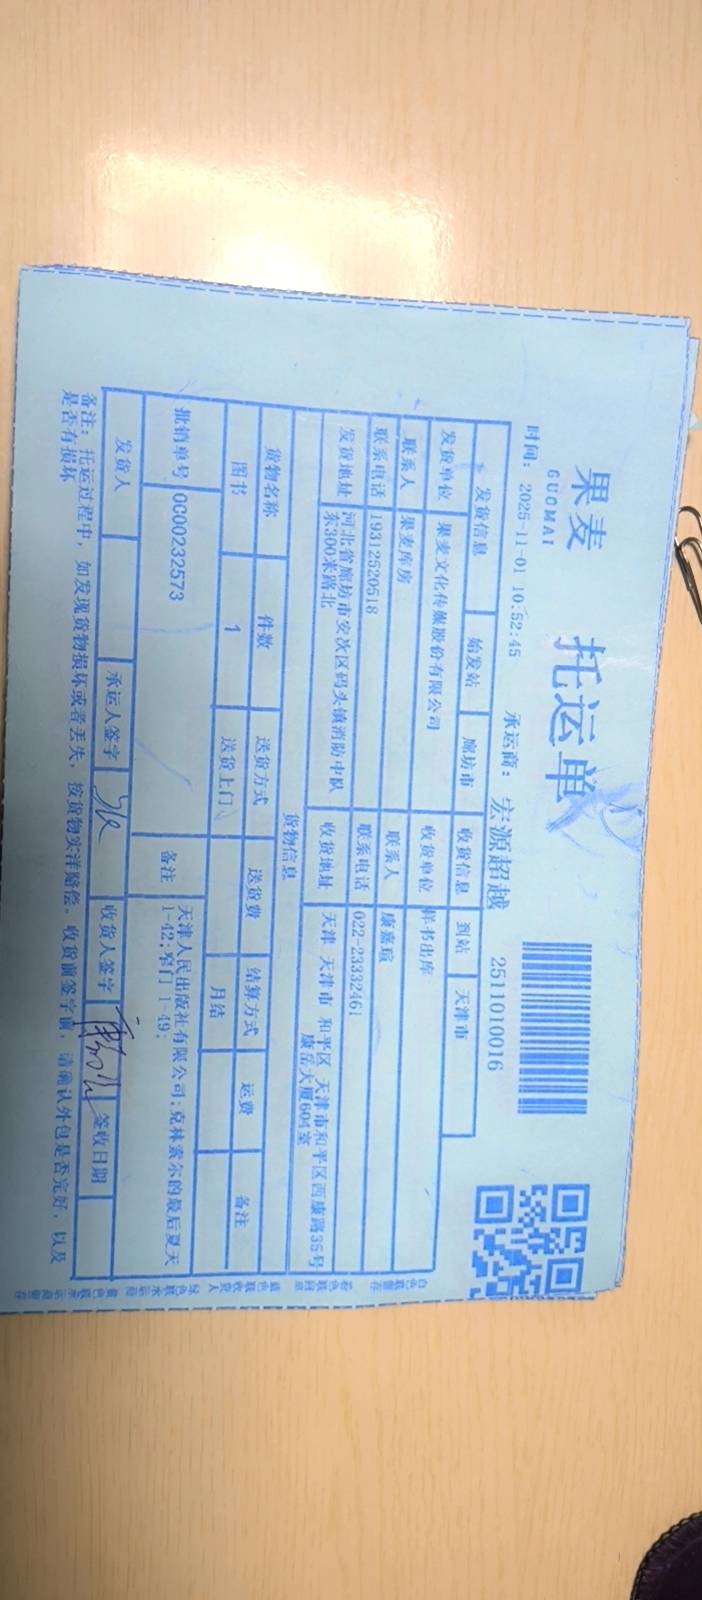 果麦
GUOMAI
托运单
时间: 2025-11-01 10:52:45 承运商: 宏源超越 2511010016
发货信息 始发站 廊坊市 收货信息 到站 天津市
发货单位 果麦文化传媒股份有限公司 收货单位 样书出库
联系人 果麦库房 联系人 康嘉瑄
联系电话 19312520518 联系电话 022-23332461
发货地址 河北省廊坊市安次区码头镇消防中队东300米路北 收货地址 天津 天津市 和平区 天津市和平区西康路35号康岳大厦604室
货物信息
货物名称 件数 送货方式 送货费 结算方式 运费 备注
图书 1 送货上门 月结
批销单号 0C00232573 备注 天津人民出版社有限公司;克林索尔的最后夏天
1-42;窄门 1-49;
发货人 承运人签字 收货人签字 签收日期
备注: 托运过程中, 如发现货物损坏或者丢失, 按货物实洋赔偿。收货前签字前, 请确认外包是否完好, 以及
是否有损坏